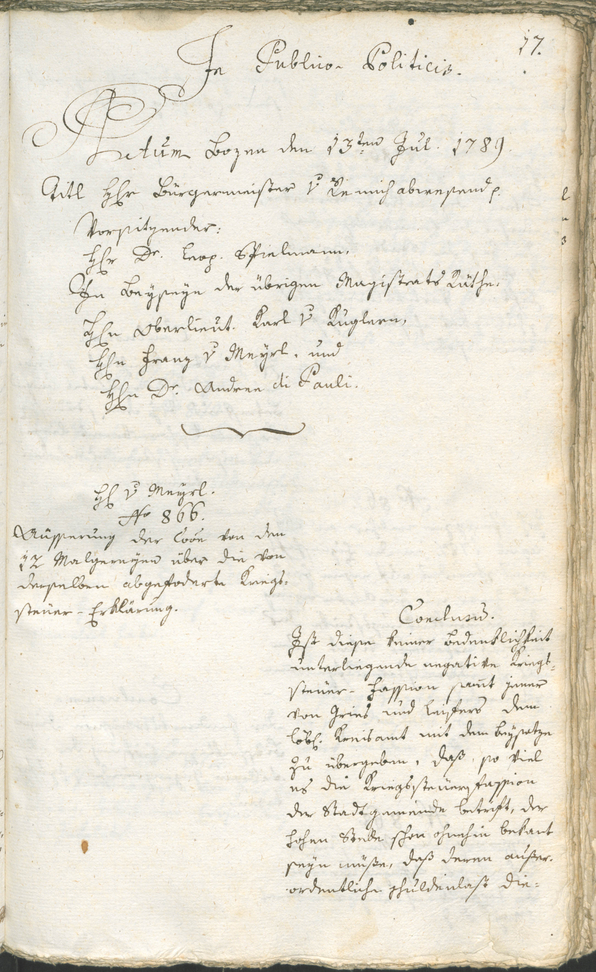 17.
In Publico-Politicis.
Actum Bozen den 13ten Jul. 1789.
Titl Hhr Bürgermeister v Remich abwesend
Vorsitzender:
Hhr Dr. Leop. Spielmann,
In Beyseyn der übrigen Magistrats Räthe,
Hhn Oberlieut. Karl v Kuglern,
Hhn Franz v Meyrl, und
Hhn Dr. Andree di Pauli.
Hh v Meyrl.
No 866.
Äusserung der Löbe von den
12 Malgereyen über die von
denselben abgefoderte Kriegs-
steuer-Erklärung.
Conclusus.
Ist diese keiner Bedenklichkeit
unterliegende negative Kriegs-
steuer-Fassion samt jener
von Gries und Leifers dem
löbl. Kreisamt mit dem Beysatze
zu übergeben, daß, so viel
es die Kriegssteuersfassion
der Stadtgemeinde betrift, der
hohen Stelle schon ohnehin bekant
seyn müße, daß deren außer-
ordentliche Schuldenlast die-